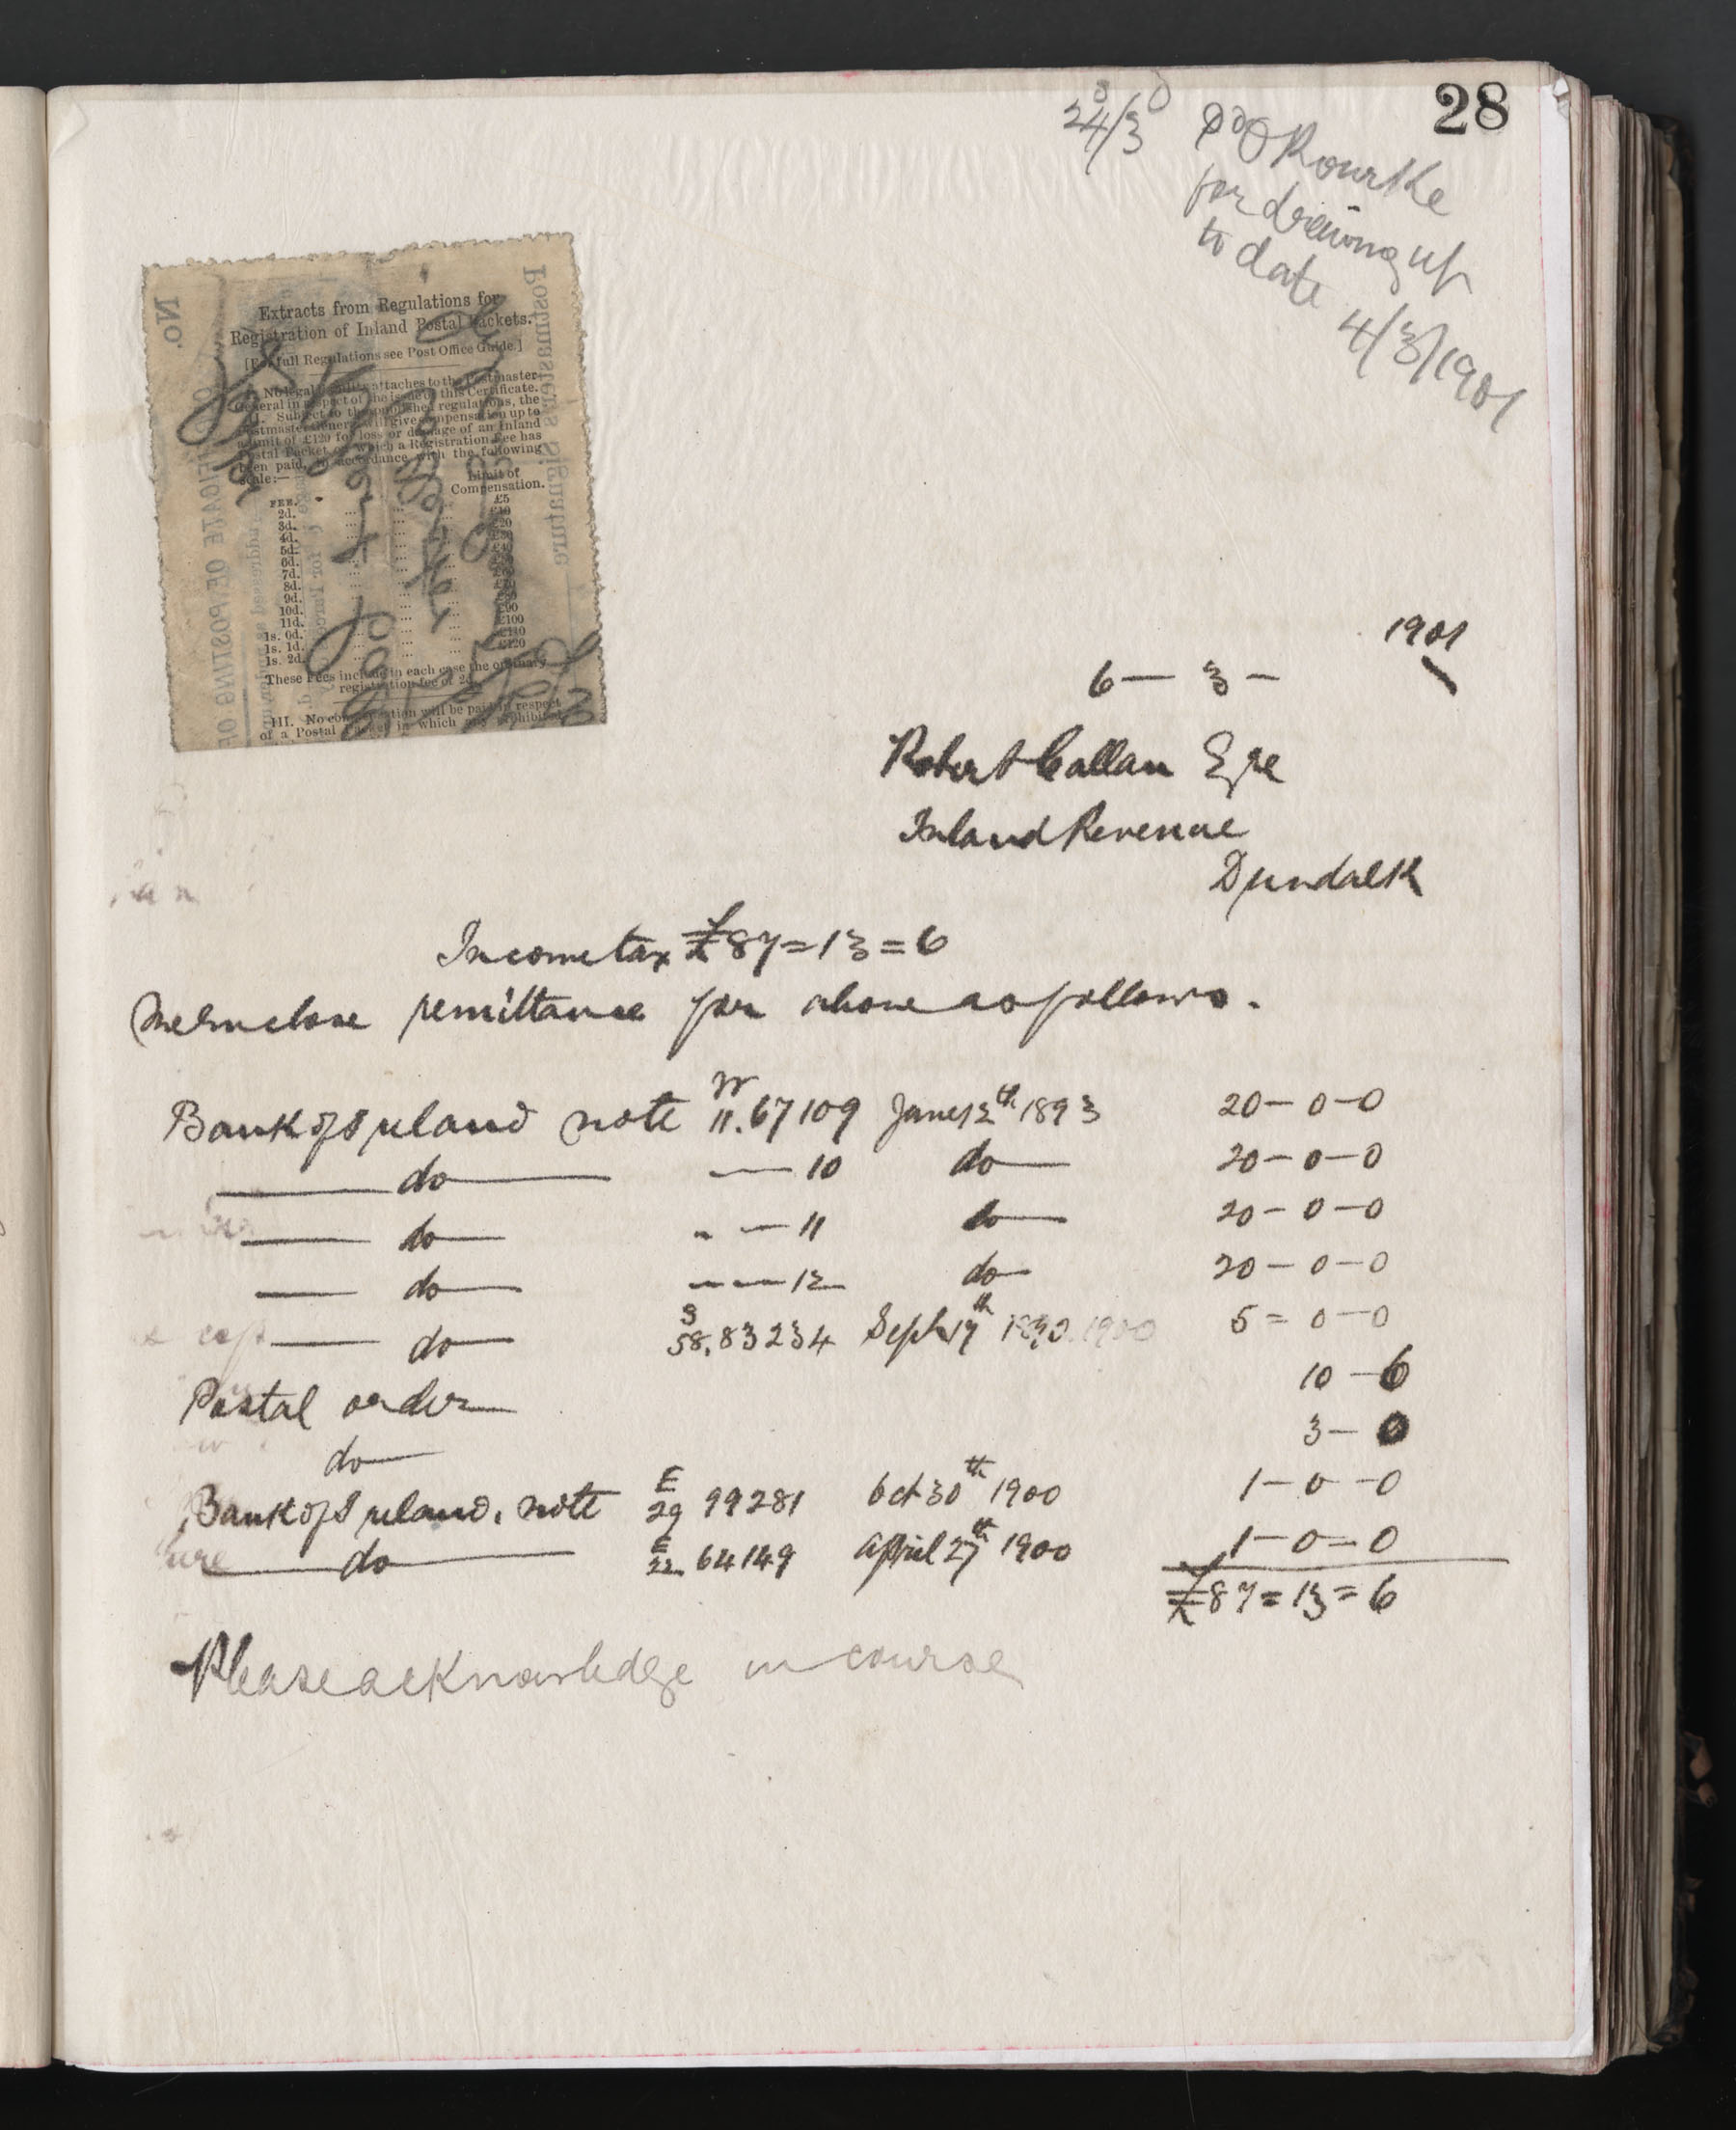 28
24/3
O Rourke
for drawing up
to date
4/3/1901
No.
Postmaster's Signature
CERTIFICATE OF POSTING OF
Extracts from Regulations for
Registration of Inland Postal Packets.
[For full Regulations see Post Office Guide.]
I. No legal liability attaches to the Postmaster-
General in respect of the issue of this Certificate.
II. Subject to the published regulations, the
Postmaster General will give compensation up to
a limit of £120 for loss or damage of an Inland
Postal Packet on which a Registration Fee has
been paid, in accordance with the following
scale:—
Limit of
FEE. Compensation.
2d. ... £5
3d. ... £10
4d. ... £20
5d. ... £30
6d.
7d.
8d.
9d.
10d. ... £90
11d. ... £100
1s. 0d. ... £110
1s. 1d. ... £120
1s. 2d.
These Fees include in each case the ordinary
registration fee of 2d.
III. No compensation will be paid in respect
of a Postal Packet in which any prohibited
1901
6 — 3 —
Robert Callan Esqe
Inland Revenue
Dundalk
Income tax £87=13=6
We enclose remittance for above as follows.
Bank of Ireland note W 11.67109 Jany 12th 1893 20-0-0
do —10 do 20-0-0
do —11 do 20-0-0
do —12 do 20-0-0
do S 58.83234 Sept 17th 1900 5=0-0
Postal order 10-6
do 3-0
Bank of Ireland. note E 29 99281 Oct 30th 1900 1-0-0
do E 22 64149 April 27th 1900 1-0-0
£87=13=6
Please acknowledge in course